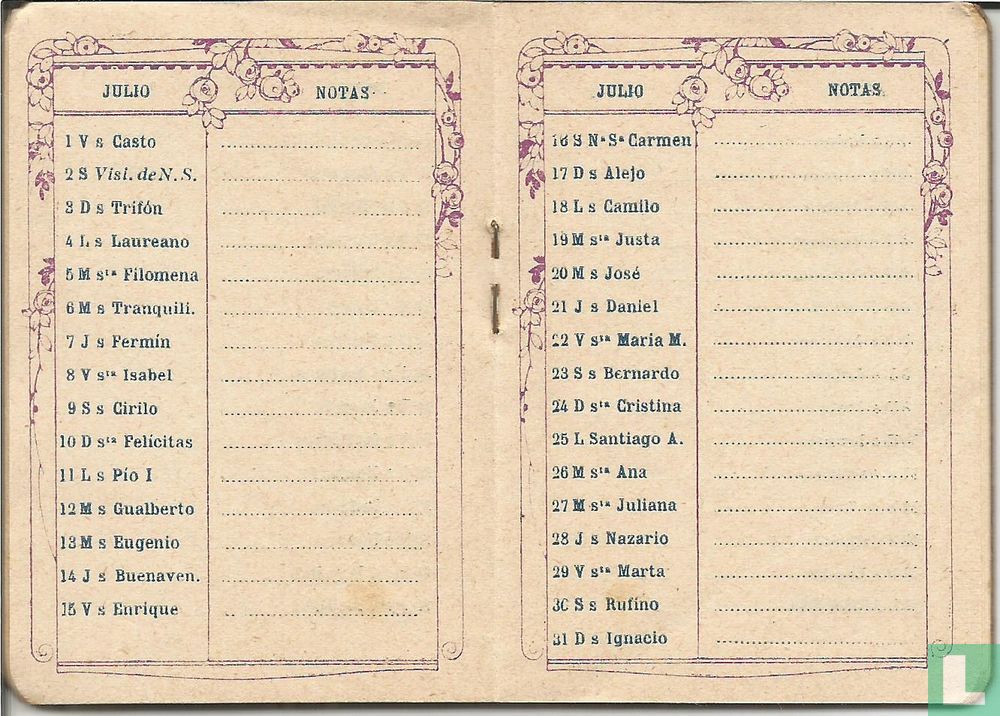 JULIO NOTAS
1 V s Casto
2 S Visi. de N. S.
3 D s Trifón
4 L s Laureano
5 M sᵗᵃ Filomena
6 M s Tranquili.
7 J s Fermín
8 V sᵗᵃ Isabel
9 S s Cirilo
10 D sᵗᵃ Felícitas
11 L s Pío I
12 M s Gualberto
13 M s Eugenio
14 J s Buenaven.
15 V s Enrique
JULIO NOTAS
16 S Nᵃ Sᵃ Carmen
17 D s Alejo
18 L s Camilo
19 M sᵗᵃ Justa
20 M s José
21 J s Daniel
22 V sᵗᵃ Maria M.
23 S s Bernardo
24 D sᵗᵃ Cristina
25 L Santiago A.
26 M sᵗᵃ Ana
27 M sᵗᵃ Juliana
28 J s Nazario
29 V sᵗᵃ Marta
30 S s Rufino
31 D s Ignacio
L